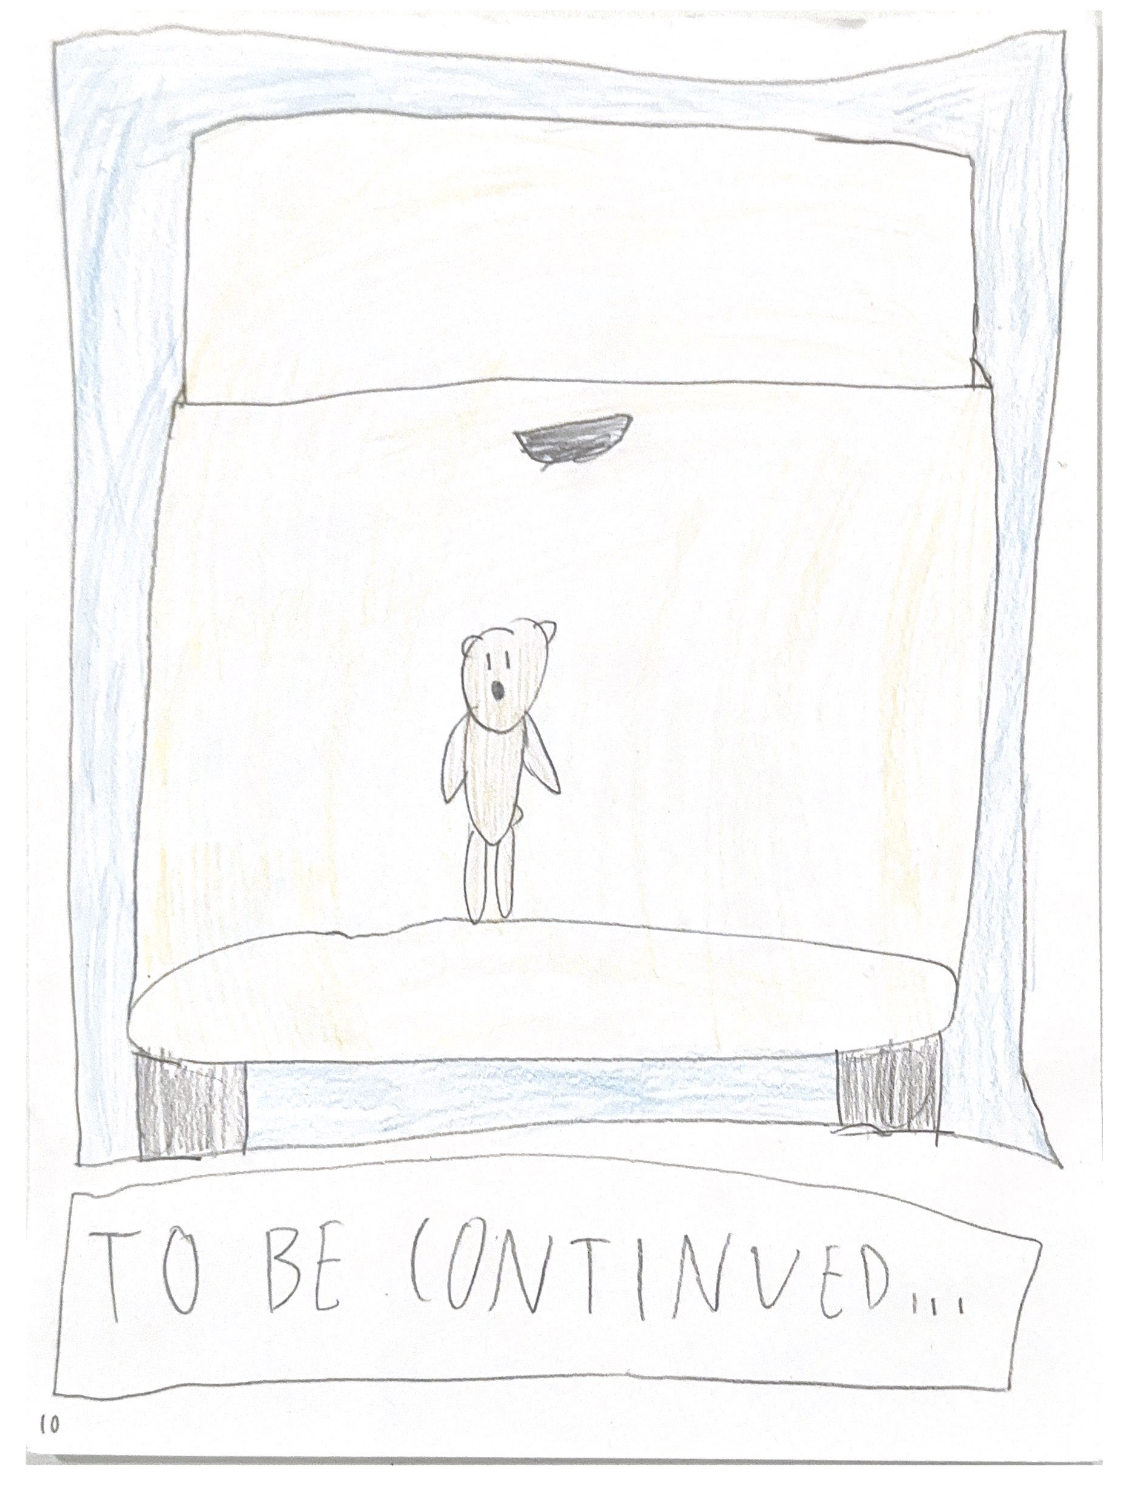 TO BE CONTINUED...
10